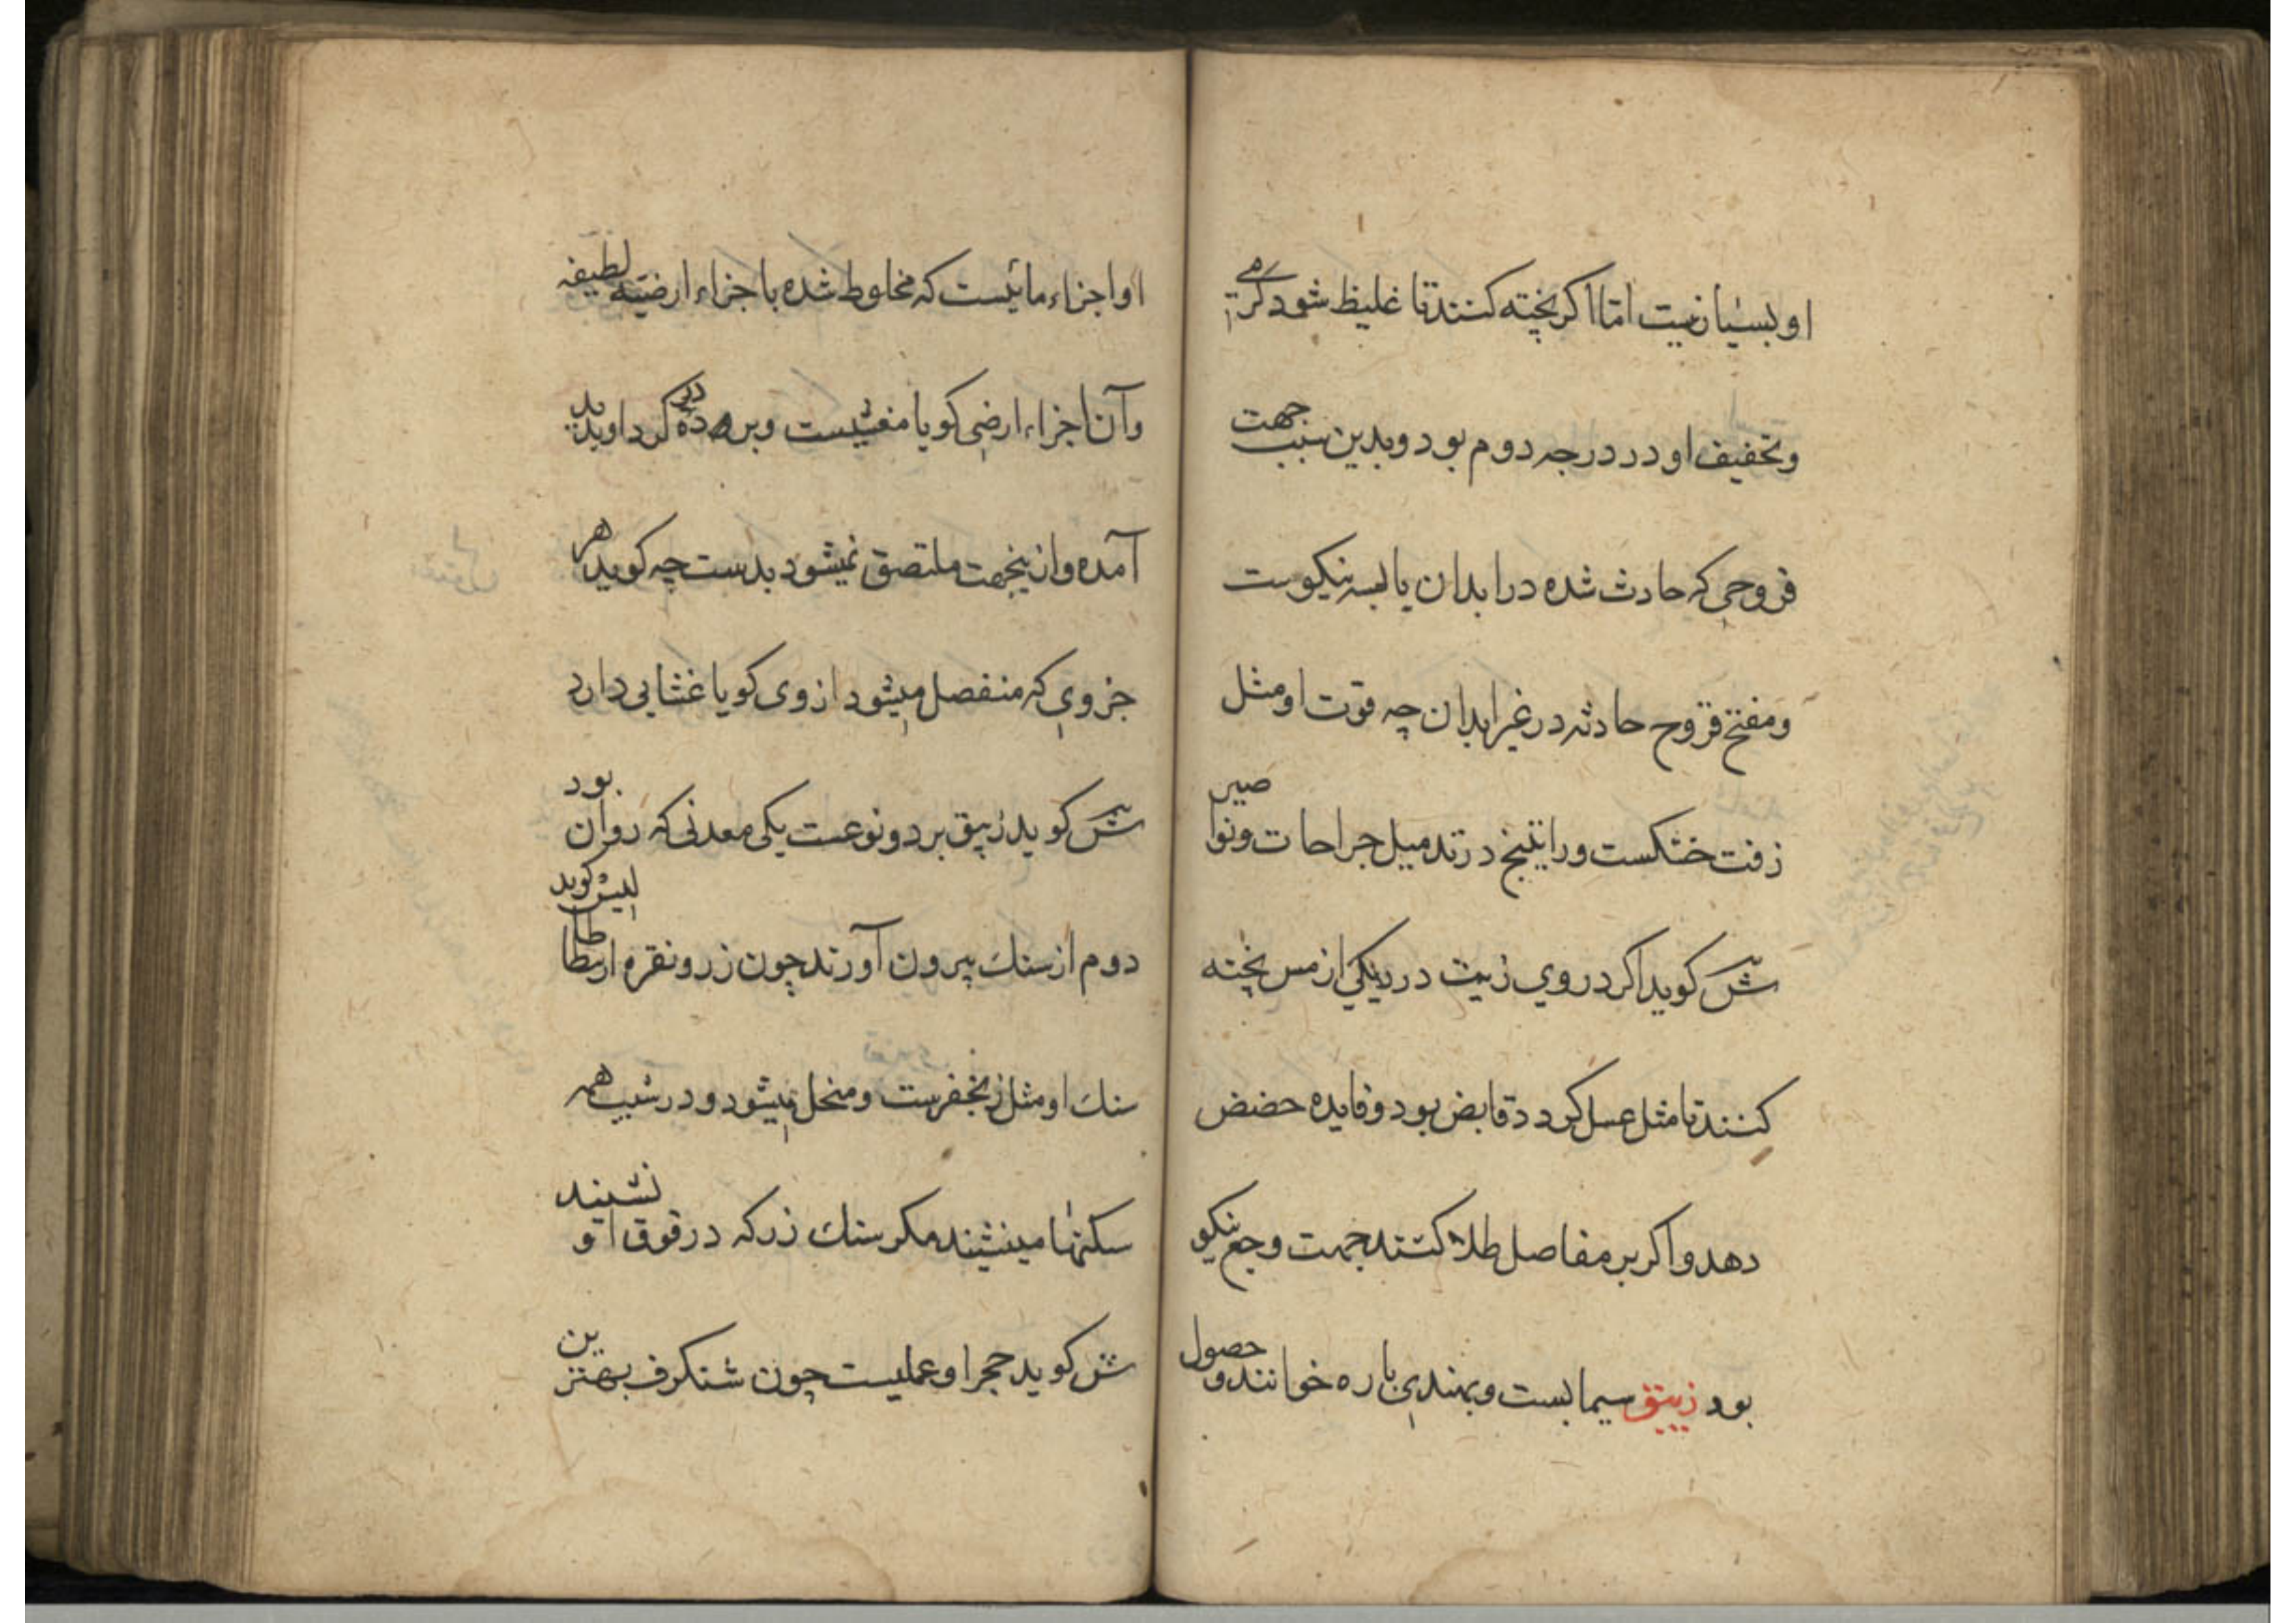 او بسیار نیست اما اکر پخته کنند تا غلیظ شود کرمی
وتخفیف او در درجه دوم بود وبدین سبب جهت
قروحی که حادث شده در ابدان یابسه نیکوست
ومفتح قروح حادثه در غیر ابدان چه قوت او مثل
زفت خشکست وراتینج در تدمیل جراحات ونواصیر
ش کوید اکر دروی زیت در دیکی از مس پخته
کنند تا مثل عسل کردد قابض بود وفایده حضض
دهد واکر بر مفاصل طلا کنند جهت وجع نیکو
بود زیبق سیمابست وبهندی پاره خوانند وحصول
او اجزاء مائیست که مخلوط شده با جزاء ارضیه لطیفه
وآن اجزاء ارضی کویا مغشیست کرد او پدید
آمده وازینجهت ملتصق نمیشود بدست چه کوید هر
جزوی که منفصل میشود از وی کویا غشایی دارد
ش کوید زیبق بر دو نوعست یکی معدنی که روان بود
دوم از سنک بیرون آورند چون زر ونقره ارسطاطالیس کوید
سنک او مثل زنجفرست ومنحل میشود ودر شیب همه
سنکها مینشیند مکر سنک زر که در فوق او نشیند
ش کوید حجر او عملیست چون شنکرف بهترین